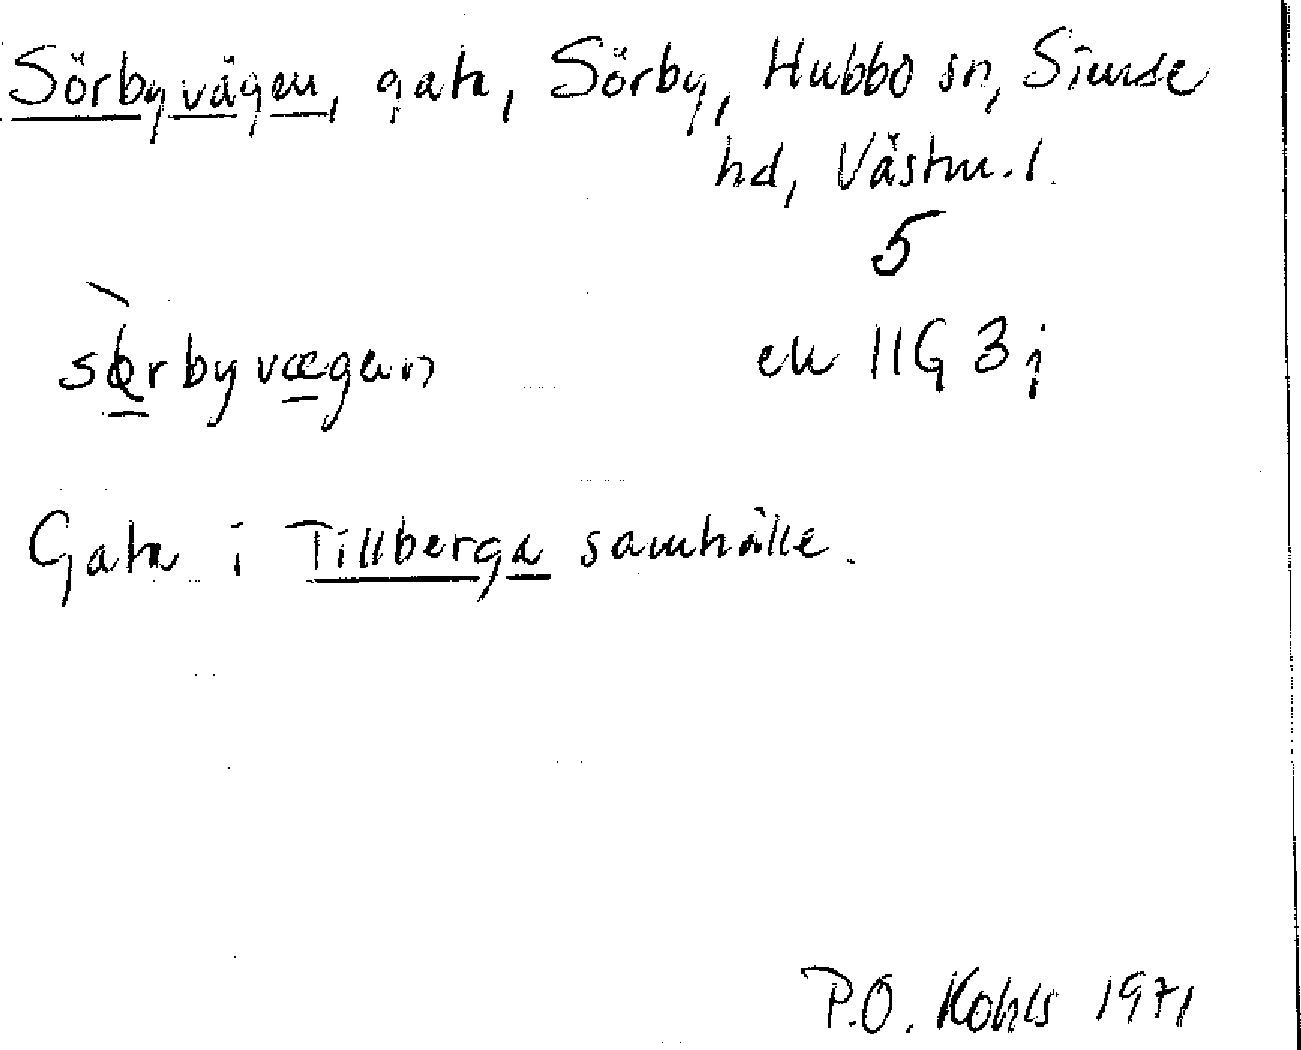 Sörbyvägen, gata, Sörby, Hubbo sn, Siende
hd, Västm. l.
5
sörbyvægen ek 11G 3j
Gata i Tillberga samhälle.
P.O. 1971